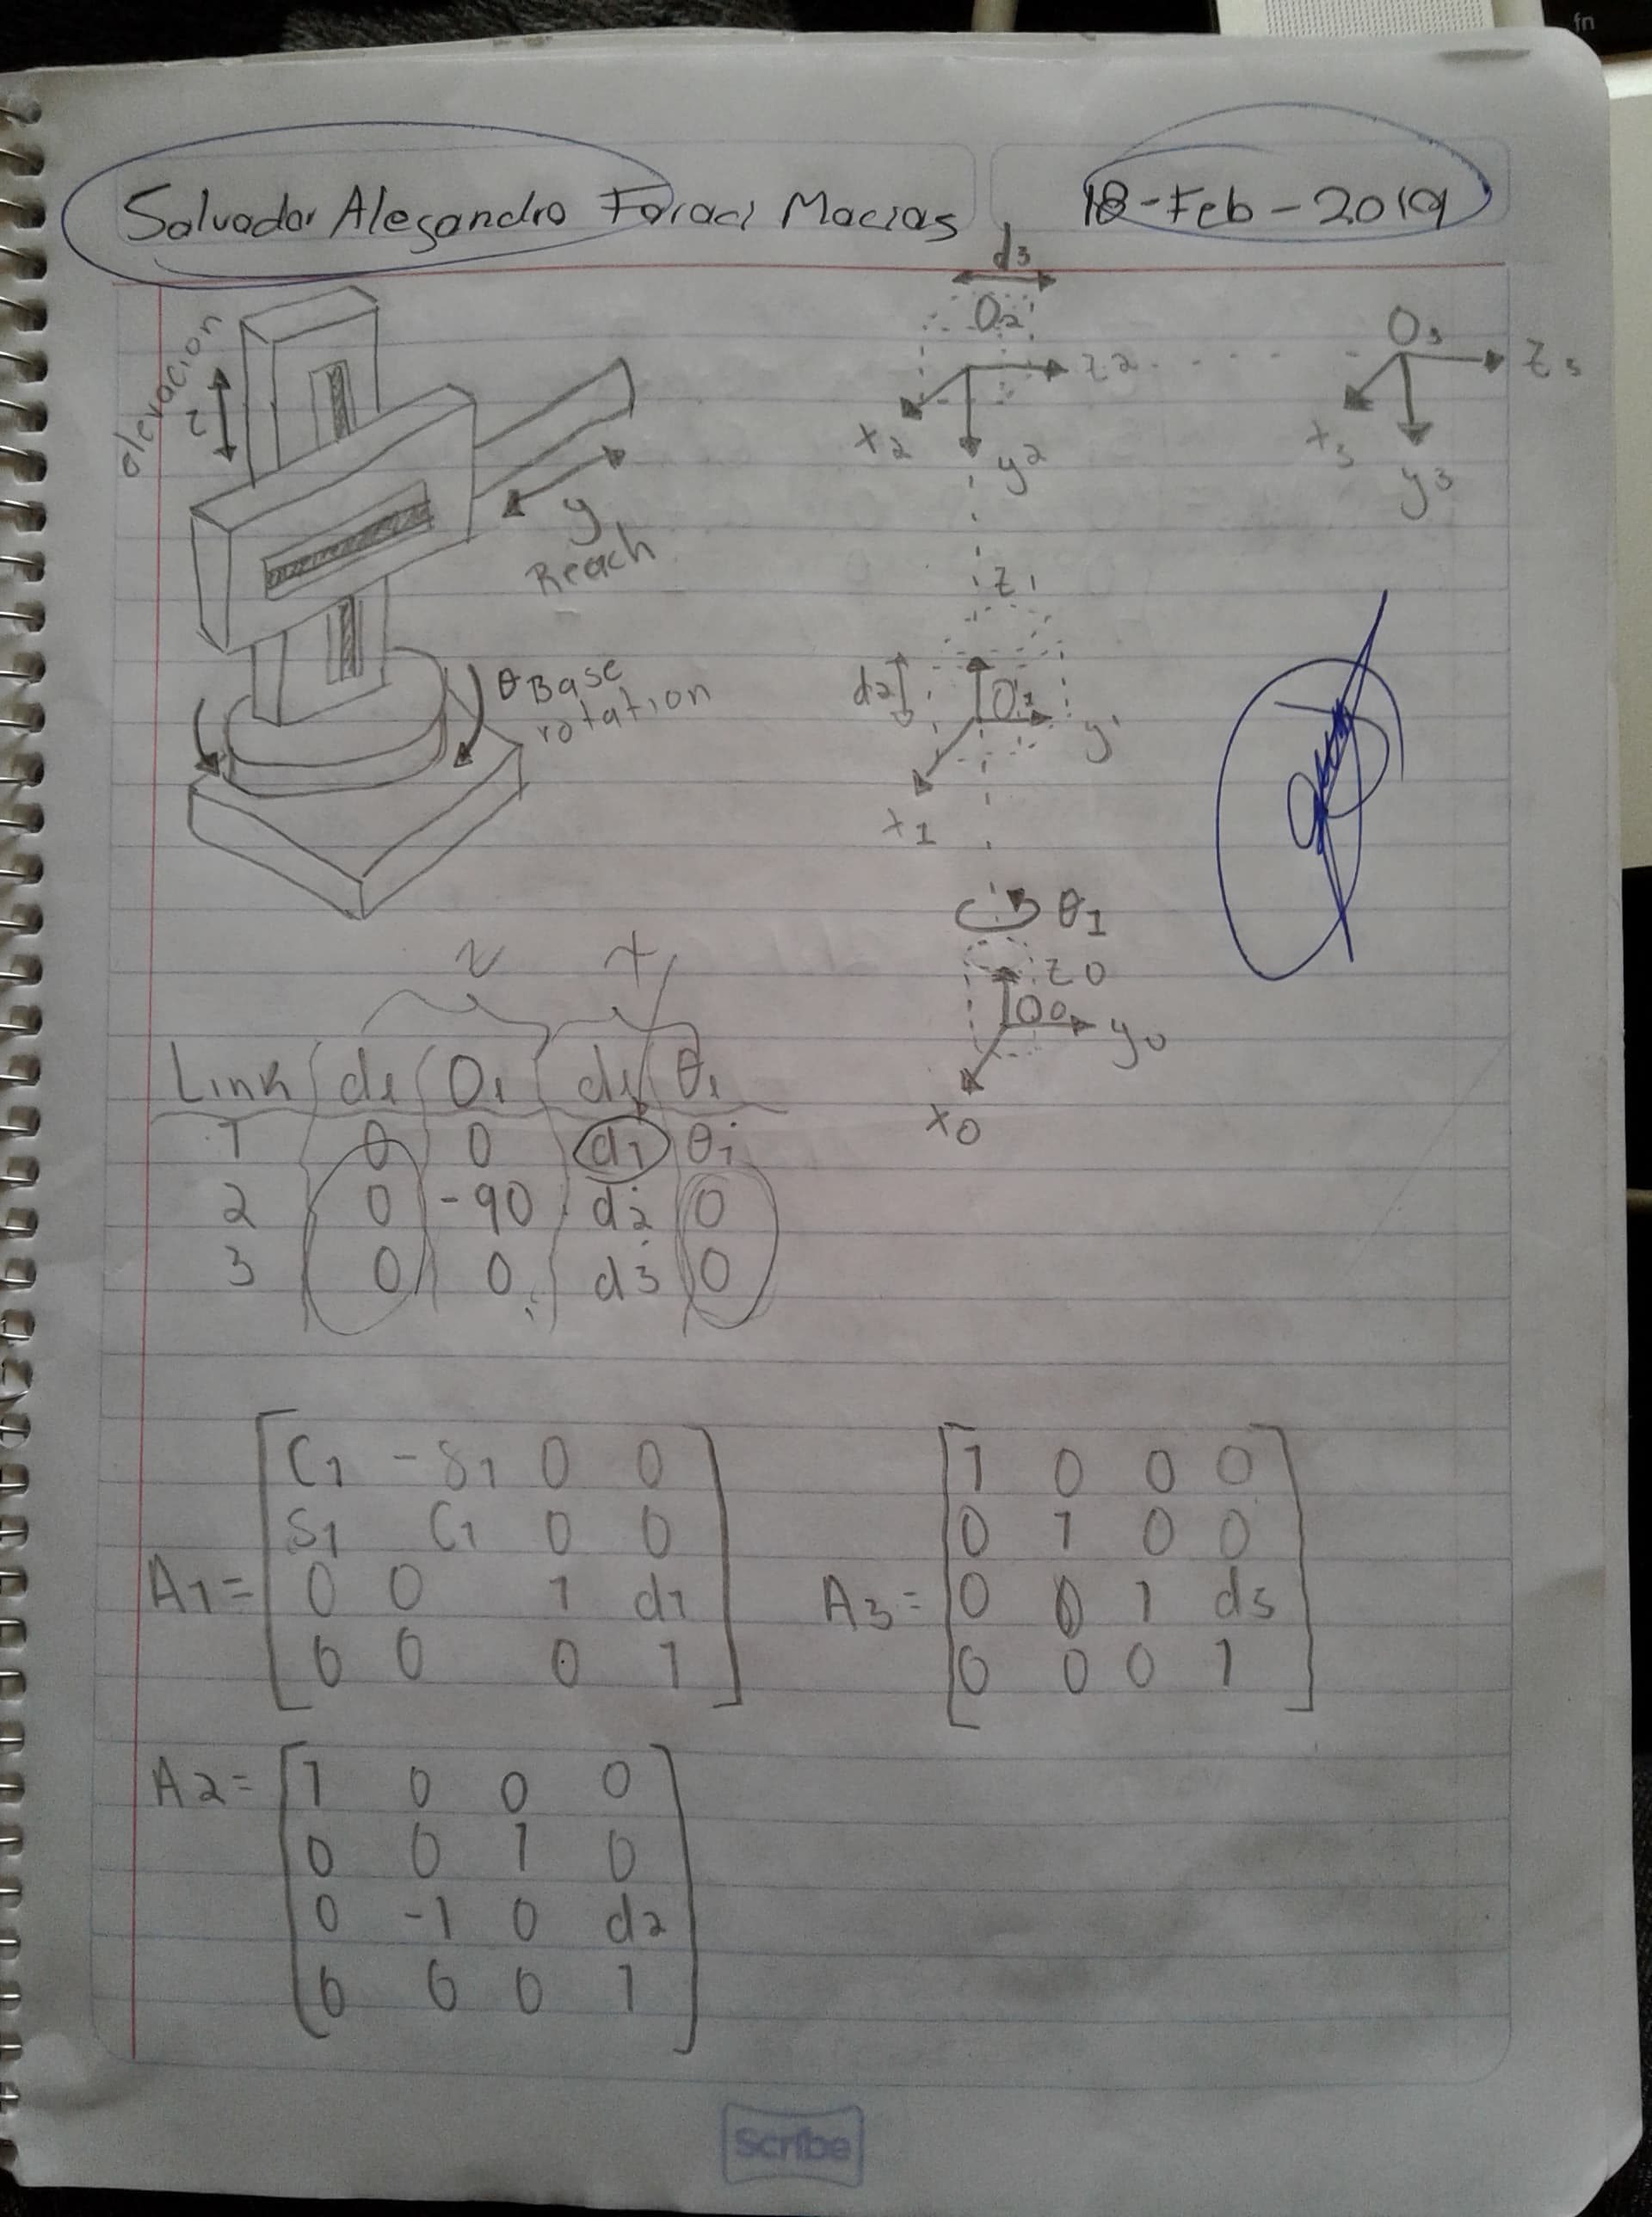 Salvador Alesandro Faraci Macias 18-Feb-2019
elevacion
z
y
Reach
θ Base
rotation
d3
O2
z2
x2
y2
O3
z3
x3
y3
z1
d2
O1
y1
x1
θ1
z0
O0
y0
x0
z x
Link di Oi di θi
1 0 0 d1 θi
2 0 -90 d2 0
3 0 0 d3 0
A1=
C1 -S1 0 0
S1 C1 0 0
0 0 1 d1
0 0 0 1
A3=
1 0 0 0
0 1 0 0
0 0 1 d3
0 0 0 1
A2=
1 0 0 0
0 0 1 0
0 -1 0 d2
0 0 0 1
Scribe
fn